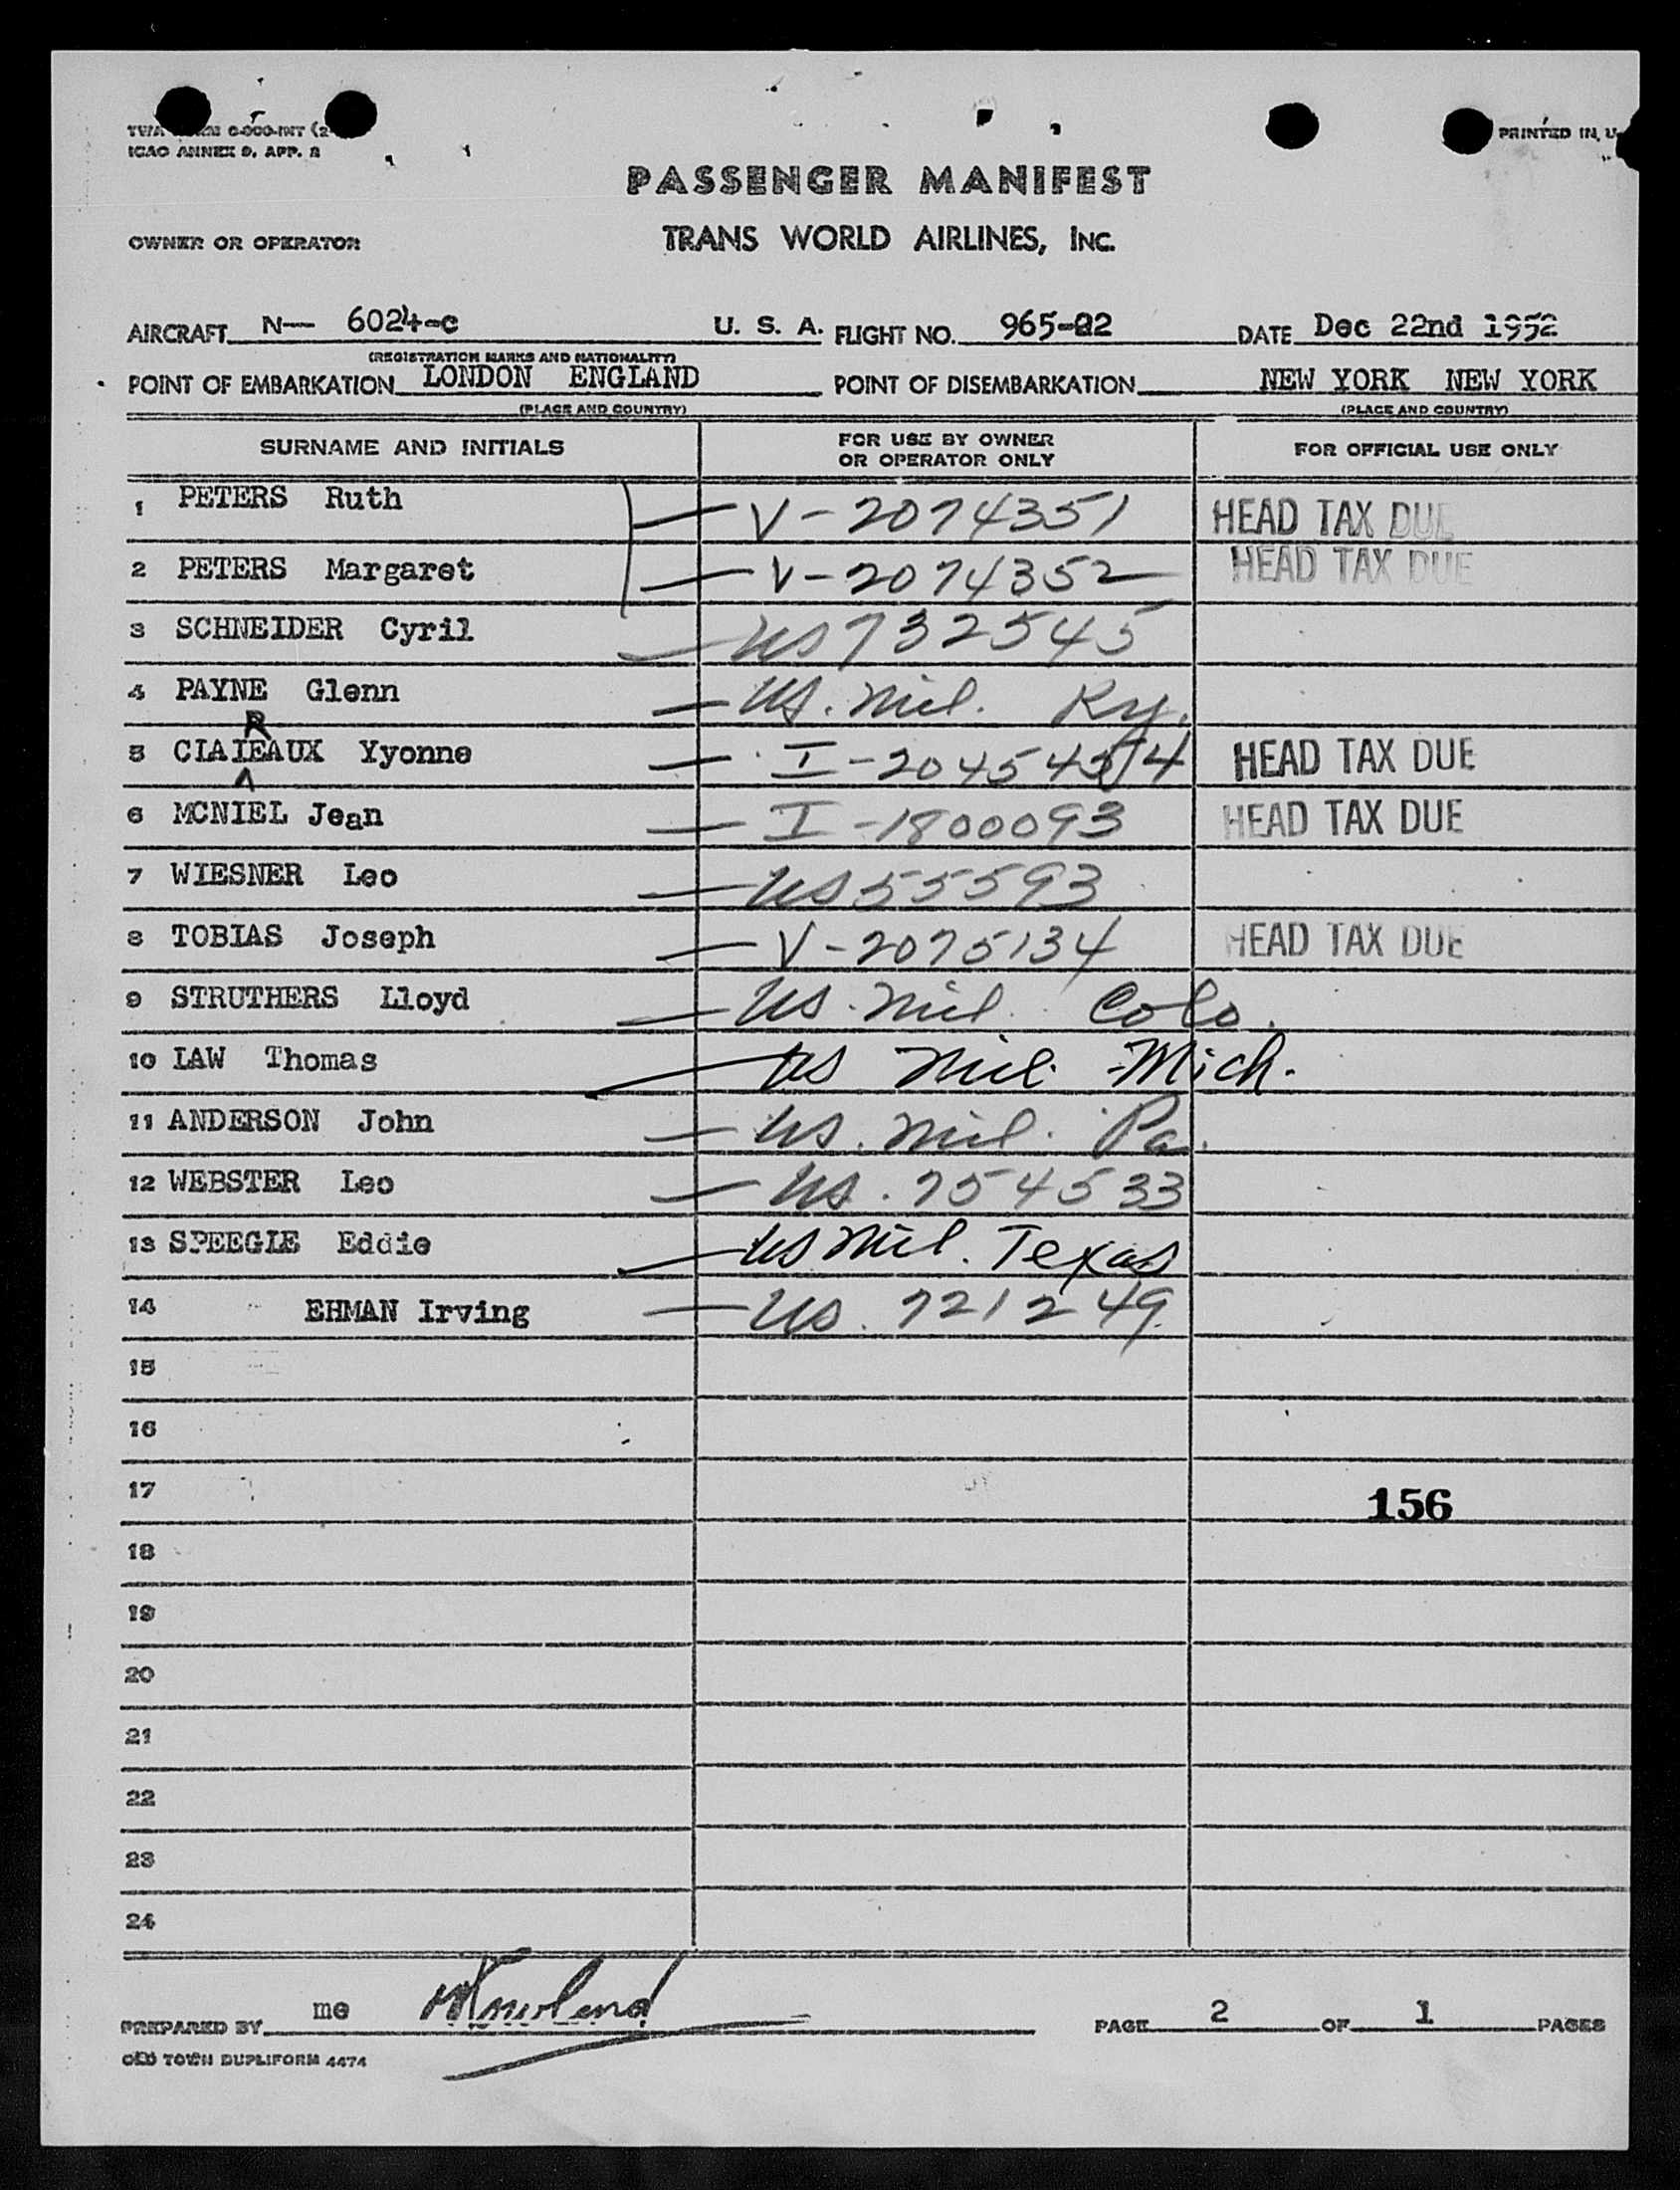 TWA FORM C-000-INT (2-
ICAO ANNEX 9, APP. 2
PRINTED IN U
PASSENGER MANIFEST
OWNER OR OPERATOR TRANS WORLD AIRLINES, INC.
AIRCRAFT N— 6024-C U. S. A. FLIGHT NO. 965-22 DATE Dec 22nd 1952
(REGISTRATION MARKS AND NATIONALITY)
POINT OF EMBARKATION LONDON ENGLAND POINT OF DISEMBARKATION NEW YORK NEW YORK
(PLACE AND COUNTRY) (PLACE AND COUNTRY)
SURNAME AND INITIALS FOR USE BY OWNER OR OPERATOR ONLY FOR OFFICIAL USE ONLY
1 PETERS Ruth V-2074351 HEAD TAX DUE
2 PETERS Margaret V-2074352 HEAD TAX DUE
3 SCHNEIDER Cyril US 732545
4 PAYNE Glenn US. Mil. Ky.
5 CLAIREAUX Yyonne I-204545 4 HEAD TAX DUE
6 MCNIEL Jean I-1800093 HEAD TAX DUE
7 WIESNER Leo US 55593
8 TOBIAS Joseph V-2075134 HEAD TAX DUE
9 STRUTHERS Lloyd US. Mil. Colo.
10 LAW Thomas US Mil. Mich.
11 ANDERSON John US. Mil. Pa.
12 WEBSTER Leo US. 754533
13 SPEEGLE Eddie US Mil. Texas
14 EHMAN Irving US. 721249
15
16
17 156
18
19
20
21
22
23
24
PREPARED BY me PAGE 2 OF 1 PAGES
OLD TOWN DUPLIFORM 4474